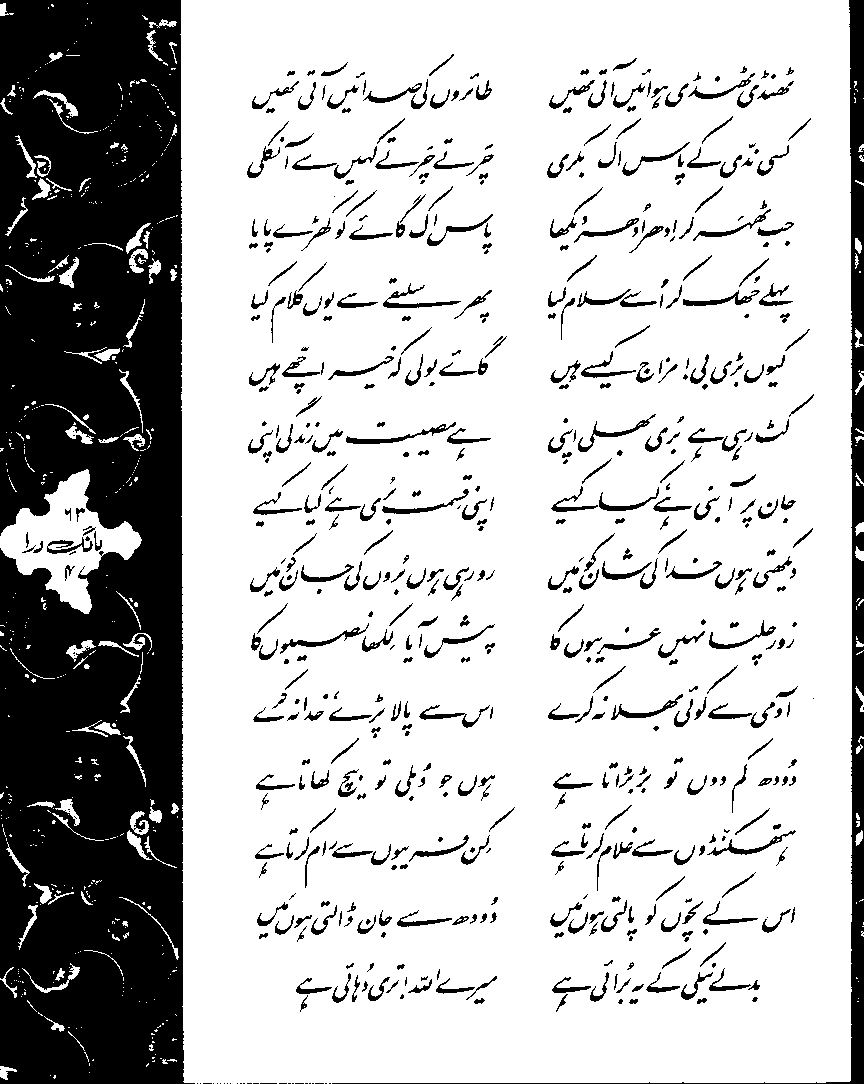 ٹھنڈی ٹھنڈی ہوائیں آتی تھیں طائروں کی صدائیں آتی تھیں
کسی ندّی کے پاس اک بکری چَرتے چَرتے کہیں سے آ نکلی
جب ٹھہر کر اِدھر اُدھر دیکھا پاس اک گائے کو کھڑے پایا
پہلے جُھک کر اُسے سلام کیا پھر سلیقے سے یوں کلام کیا
کیوں بڑی بی! مزاج کیسے ہیں گائے بولی کہ خیر اچھّے ہیں
کٹ رہی ہے بُری بھلی اپنی ہے مصیبت میں زندگی اپنی
جان پر آ بنی ہے، کیا کہیے اپنی قِسمت بُری ہے، کیا کہیے
دیکھتی ہوں خدا کی شان کو مَیں رو رہی ہوں بُروں کی جان کو مَیں
زور چلتا نہیں غریبوں کا پیش آیا لِکھا نصیبوں کا
آدمی سے کوئی بھلا نہ کرے اس سے پالا پڑے، خدا نہ کرے
دُودھ کم دوں تو بڑبڑاتا ہے ہوں جو دُبلی تو بیچ کھاتا ہے
ہتھکنڈوں سے غلام کرتا ہے کِن فریبوں سے رام کرتا ہے
اس کے بچّوں کو پالتی ہوں مَیں دُودھ سے جان ڈالتی ہوں مَیں
بدلے نیکی کے یہ بُرائی ہے میرے اللہ! تری دُہائی ہے
۶۳
بانگِ درا
۴۷